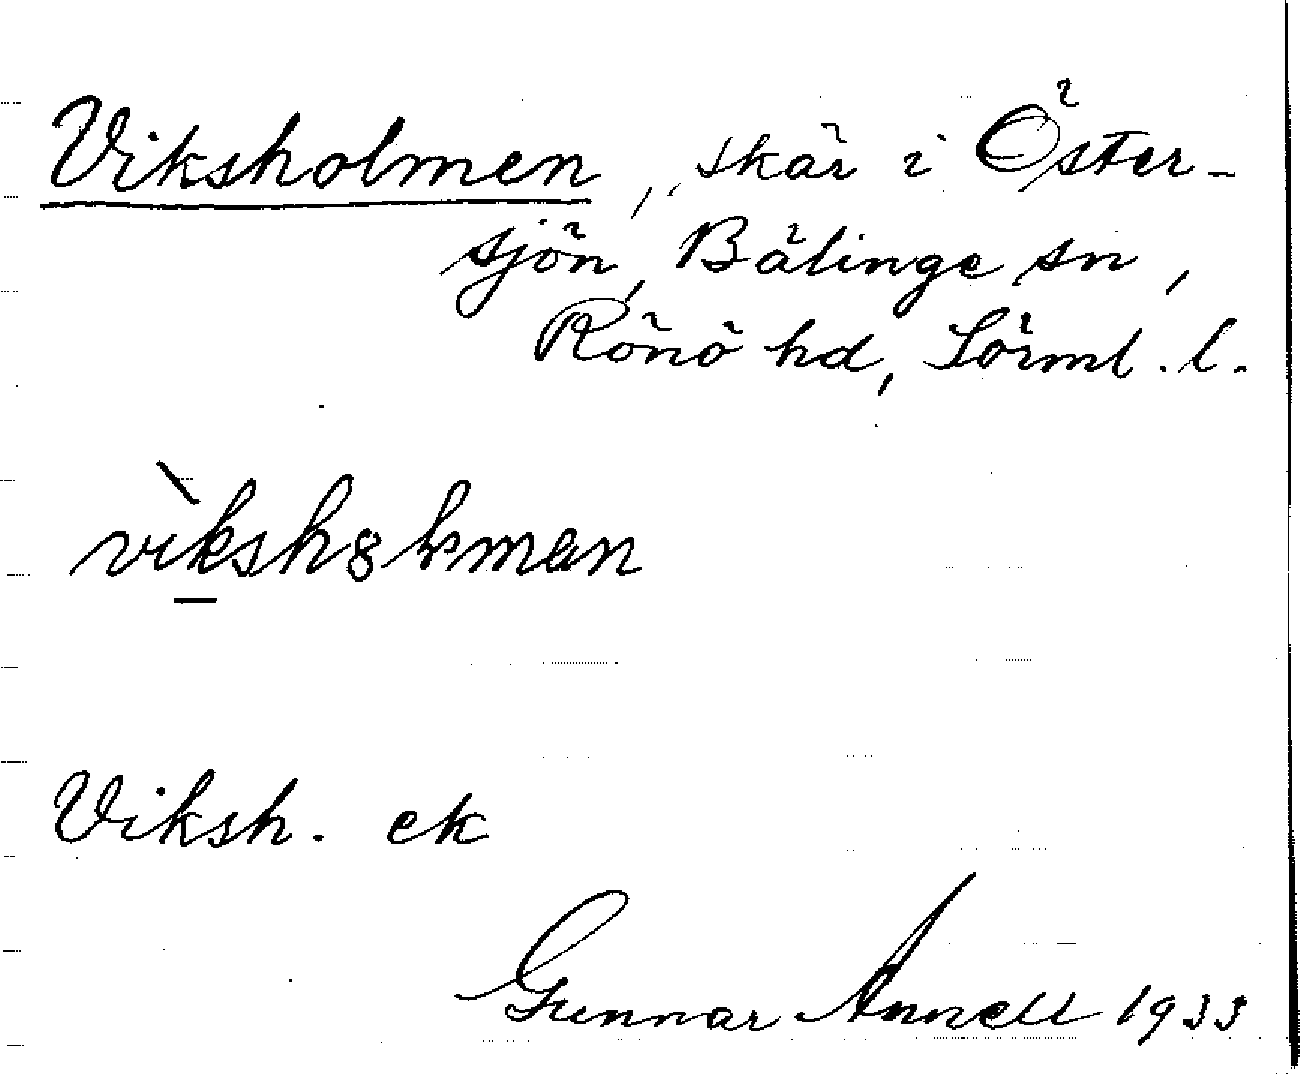 Viksholmen, skär i Öster-
sjön, Bälinge sn,
Rönö hd, Sörml. l.
Viksh. ek
Gunnar Annell 1933